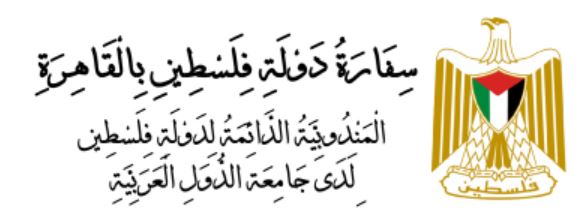 سِفَارَةُ دَوْلَةِ فِلَسْطِين بِالْقَاهِرَةِ
الْمَنْدُوبِيَّةُ الدَّائِمَةُ لِدَوْلَةِ فِلَسْطِين
لَدَى جَامِعَةِ الدُّوَلِ الْعَرَبِيَّةِ
فلسطين